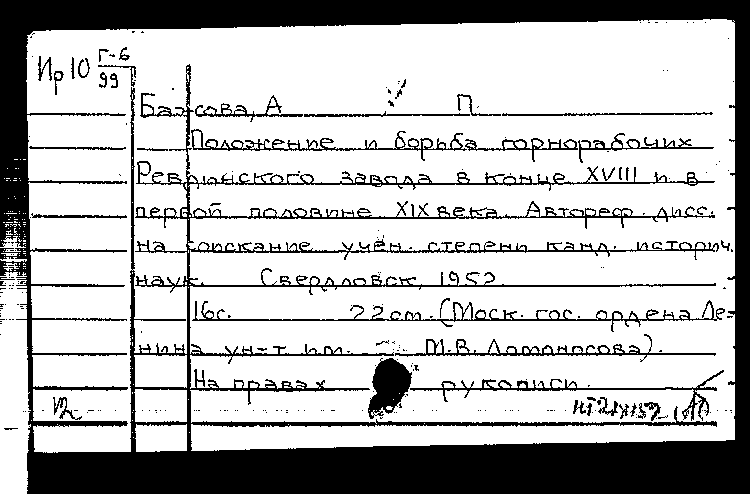 Ир 10 Г-6
99
Бажова, А П.
Положение и борьба горнорабочих
Ревдинского завода в конце XVIII и в
первой половине XIX века. Автореф. дисс.
на соискание учен. степени канд. историч.
наук. Свердловск, 1952.
16с. 22см. (Моск. гос. ордена Ле-
нина ун-т им. М.В. Ломоносова).
На правах рукописи.